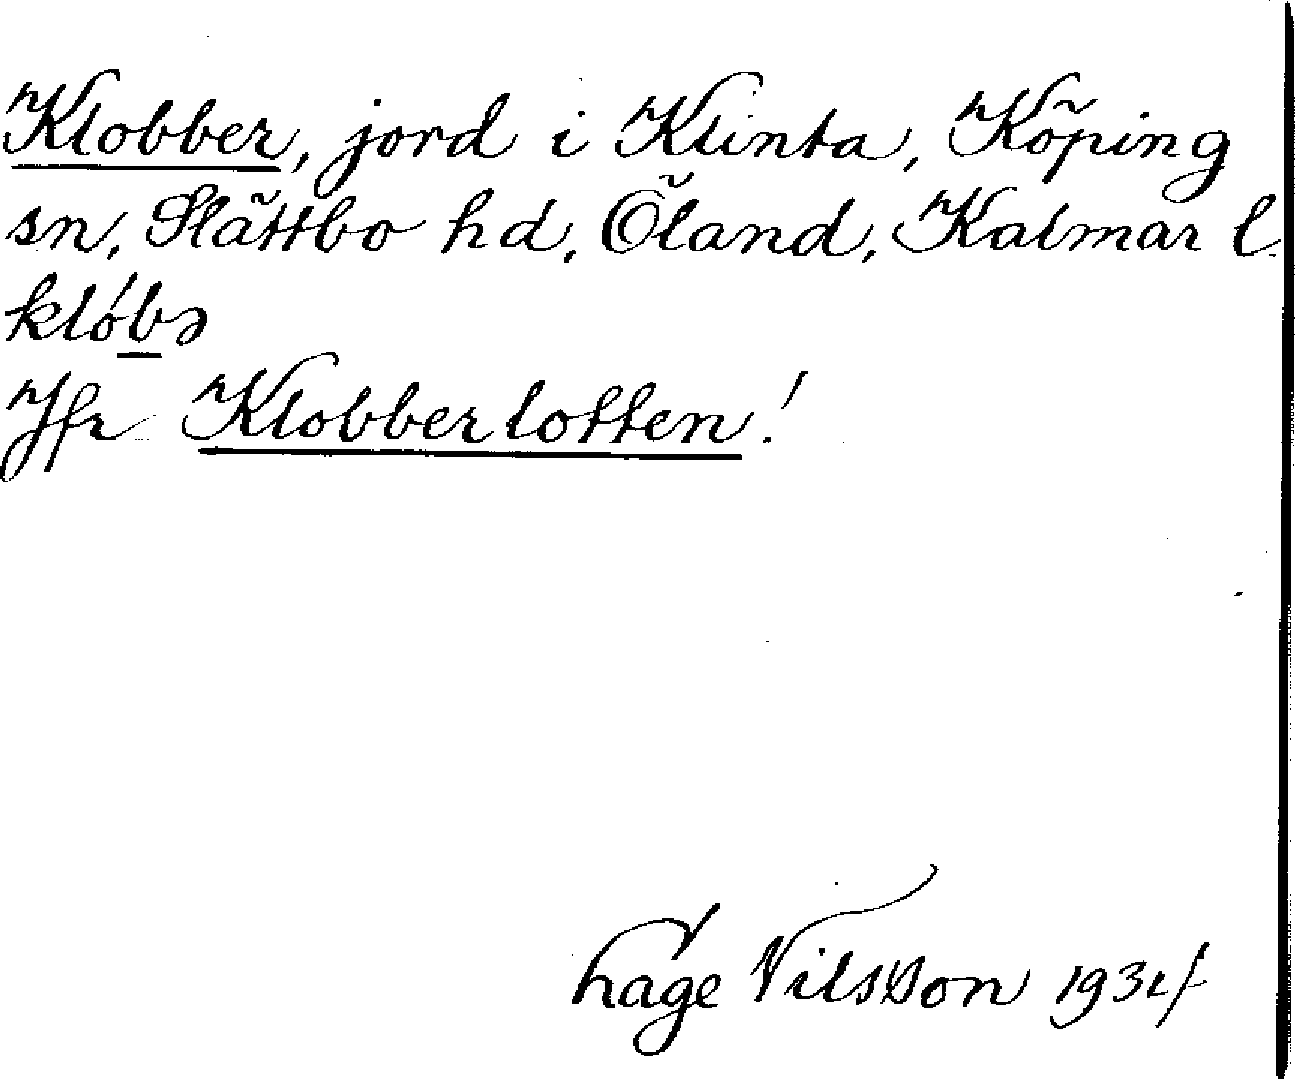 Klobber, jord i Klinta, Köping
sn, Slättbo hd, Öland, Kalmar l.
klóbə
Jfr Klobberlotten!
håge Nilsson 1934